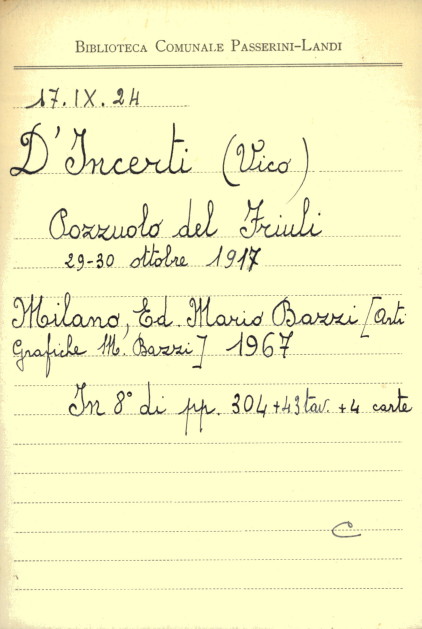 BIBLIOTECA COMUNALE PASSERINI-LANDI
17.IX.24
D'Incerti (Vico)
Pozzuolo del Friuli
29-30 ottobre 1917
Milano, Ed. Mario Bazzi [Arti
Grafiche M. Bazzi] 1967
In 8° di pp. 304+43 tav. +4 carte
C